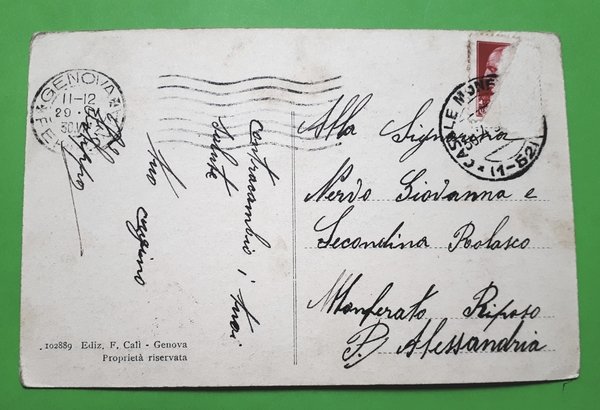 GENOVA
11-12
29
30.VI
Contracambio i tuoi
saluti
tuo cugino
102889 Ediz. F. Calì - Genova
Proprietà riservata
CASALE MONF
(1-52)
Alla Signora
Nervo Giovanna e
Secondina Rolasco
Monferato Riposo
P. Alessandria